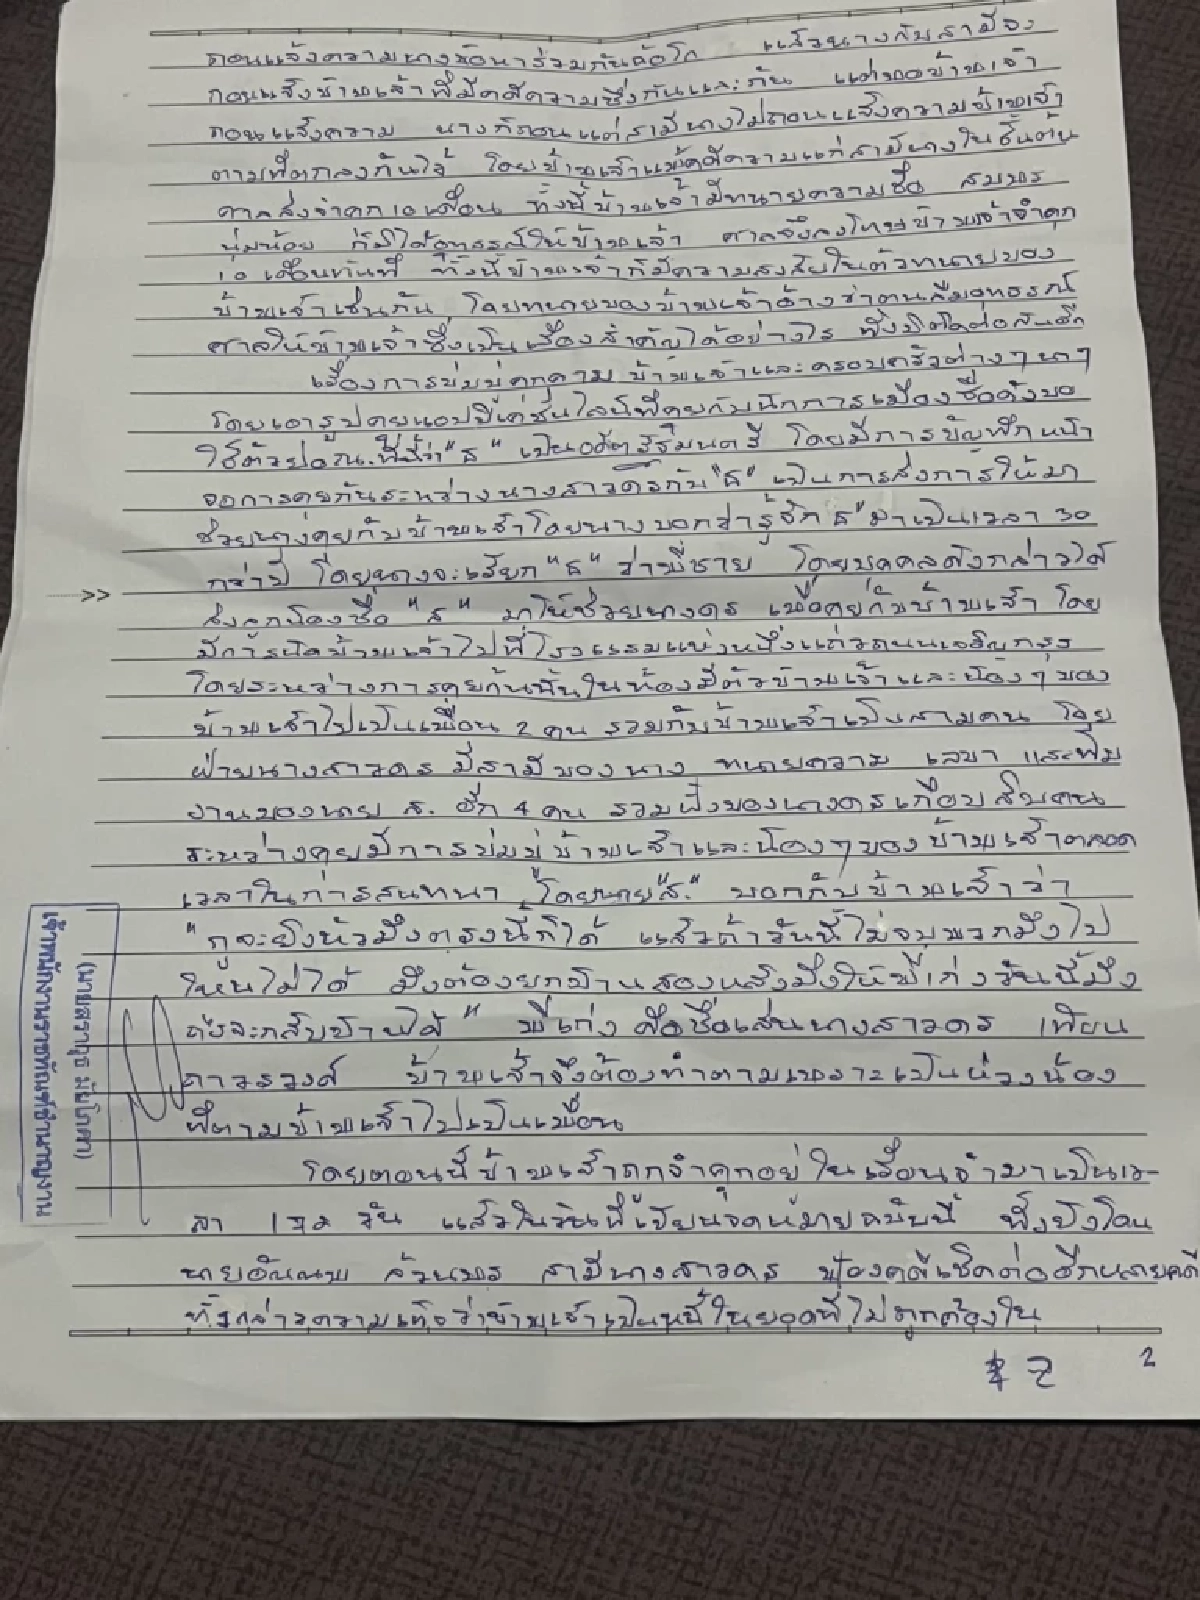 ถอนแจ้งความนางข้อหาร่วมกันฉ้อโกง แล้วนางกับสามีจึง
ถอนแจ้งข้าพเจ้าที่มีคดีความซึ่งกันและกัน แต่พอข้าพเจ้า
ถอนแจ้งความ นางก็ถอนแต่สามีนางไม่ถอนแจ้งความข้าพเจ้า
ตามที่ตกลงกันไว้ โดยข้าพเจ้าแพ้คดีความแก่สามีนางในชั้นต้น
ศาลสั่งจำคุก 10 เดือน ทั้งนี้ข้าพเจ้ามีทนายความชื่อ สมพร
นุ่มน้อย ก็มิได้อุทธรณ์ให้ข้าพเจ้า ศาลจึงลงโทษข้าพเจ้าจำคุก
10 เดือนทันที ทั้งนี้ข้าพเจ้าก็มีความสงสัยในตัวทนายของ
ข้าพเจ้าเช่นกัน โดยทนายของข้าพเจ้าอ้างว่าตนลืมอุทธรณ์
ศาลให้ข้าพเจ้าซึ่งเป็นเรื่องสำคัญได้อย่างไร
เรื่องการข่มขู่คุกคาม ข้าพเจ้าและครอบครัวต่างๆนาๆ
โดยเอารูปคุยแอปพิเคชั่นไลน์ที่คุยกับนักการเมืองชื่อดังขอ
ใช้ตัวย่อ ณ.ที่นี้ว่า "ธ" เป็นอดีตรัฐมนตรี โดยมีการบันทึกหน้า
จอการคุยกันระหว่างนางสาวดรกับ "ธ" เป็นการสั่งการให้มา
ช่วยนางคุยกับข้าพเจ้าโดยนางบอกว่ารู้จัก "ธ" มาเป็นเวลา 30
กว่าปี โดยนางจะเรียก "ธ" ว่าพี่ชาย โดยบุคคลดังกล่าวได้
ส่งลูกน้องชื่อ "ส" มาให้ช่วยนางดร เพื่อคุยกับข้าพเจ้า โดย
มีการนัดข้าพเจ้าไปที่โรงแรมแห่งหนึ่งแถวถนนเจริญกรุง
โดยระหว่างการคุยกันนั้นในห้องมีตัวข้าพเจ้าและน้องๆของ
ข้าพเจ้าไปเป็นเพื่อน 2 คน รวมกับข้าพเจ้าเป็นสามคน โดย
ฝ่ายนางสาวดร มีสามีของนาง ทนายความ เลขา และทีม
งานของนาย ส. อีก 4 คน รวมฝั่งของนางดรเกือบสิบคน
ระหว่างคุยมีการข่มขู่ข้าพเจ้าและน้องๆของข้าพเจ้าตลอด
เวลาในการสนทนา โดยนาย "ส." บอกกับข้าพเจ้าว่า
"กูจะยิงหัวมึงตรงนี้ก็ได้ แล้วถ้าวันนี้ไม่จบพวกมึงไป
ไหนไม่ได้ มึงต้องยกบ้านสองหลังมึงให้พี่เก่งวันนี้มึง
ถึงจะกลับบ้านได้" พี่เก่ง คือชื่อเล่นนางสาวดร เทียน
ถาวรวงศ์ ข้าพเจ้าจึงต้องทำตามเพราะเป็นห่วงน้อง
ที่ตามข้าพเจ้าไปเป็นเพื่อน
โดยตอนนี้ข้าพเจ้าถูกจำคุกอยู่ในเรือนจำมาเป็นเว-
ลา วัน แล้วในวันที่เขียนจดหมายฉบับนี้ พึ่งยังโดน
นาย ล้วนพร สามีนางสาวดร ฟ้องคดีเช็คต่ออีกหลายคดี
ทั้งกล่าวความเท็จว่าข้าพเจ้าเป็นหนี้ในยอดที่ไม่ถูกต้องใน
2
2
>>
เจ้าพนักงานราชทัณฑ์ชำนาญงาน